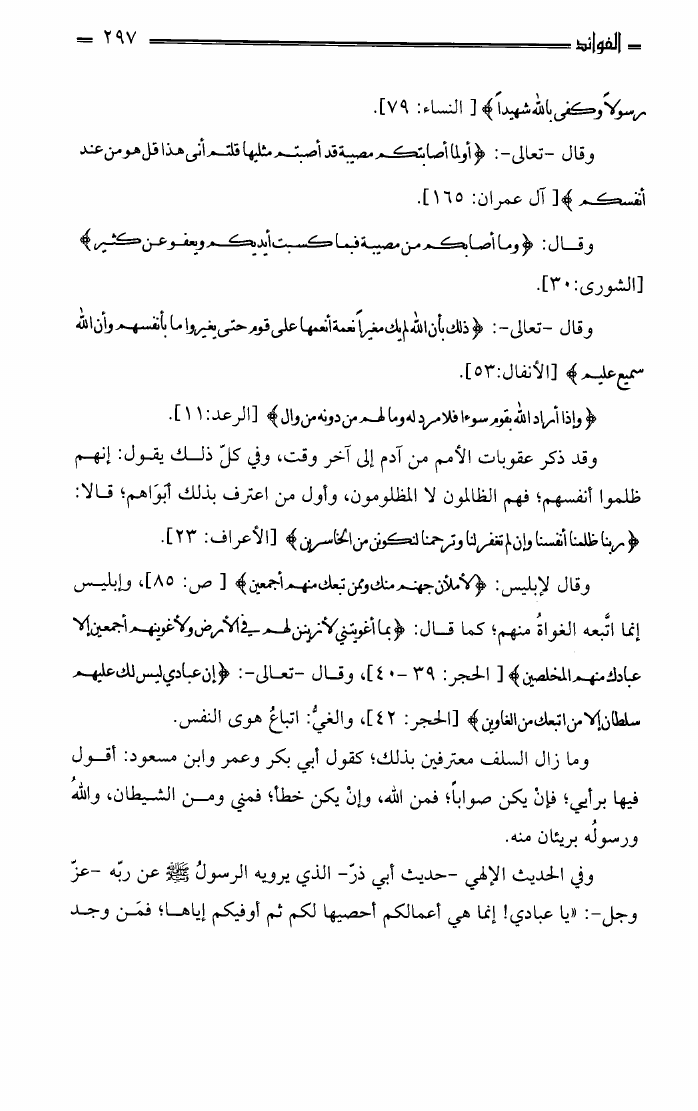 الفوائد ٢٩٧
رسولاً وكفى بالله شهيداً ﴾ [ النساء: ٧٩].
وقال -تعالى-: ﴿ أولما أصابتكم مصيبة قد أصبتم مثليها قلتم أنى هذا قل هو من عند
أنفسكم ﴾ [ آل عمران: ١٦٥].
وقال: ﴿ وما أصابكم من مصيبة فبما كسبت أيديكم ويعفو عن كثير ﴾
[الشورى:٣٠].
وقال -تعالى-: ﴿ ذلك بأن الله لم يك مغيراً نعمة أنعمها على قوم حتى يغيروا ما بأنفسهم وأن الله
سميع عليم ﴾ [الأنفال:٥٣].
﴿ وإذا أراد الله بقوم سوءا فلا مرد له وما لهم من دونه من وال ﴾ [الرعد:١١].
وقد ذكر عقوبات الأمم من آدم إلى آخر وقت، وفي كلّ ذلك يقول: إنهم
ظلموا أنفسهم؛ فهم الظالمون لا المظلومون، وأول من اعترف بذلك أبَوَاهم؛ قالا:
﴿ ربنا ظلمنا أنفسنا وإن لم تغفر لنا وترحمنا لنكونن من الخاسرين ﴾ [الأعراف: ٢٣].
وقال لإبليس: ﴿ لأملأن جهنم منك وممن تبعك منهم أجمعين ﴾ [ ص: ٨٥]، وإبليس
إنما اتَّبعه الغواةُ منهم؛ كما قال: ﴿ بما أغويتني لأزينن لهم في الأرض ولأغوينهم أجمعين إلا
عبادك منهم المخلصين ﴾ [ الحجر: ٣٩ -٤٠]، وقال -تعالى-: ﴿ إن عبادي ليس لك عليهم
سلطان إلا من اتبعك من الغاوين ﴾ [الحجر: ٤٢]، والغيُّ: اتباعُ هوى النفس.
وما زال السلف معترفين بذلك؛ كقول أبي بكر وعمر وابن مسعود: أقول
فيها برأيي؛ فإنْ يكن صواباً؛ فمن الله، وإنْ يكن خطأ؛ فمني ومن الشيطان، واللهُ
ورسولُه بريئان منه.
وفي الحديث الإلهي -حديث أبي ذرّ- الذي يرويه الرسولُ ﷺ عن ربّه -عزّ
وجل-: «يا عبادي! إنما هي أعمالكم أحصيها لكم ثم أوفيكم إياها؛ فمَن وجد